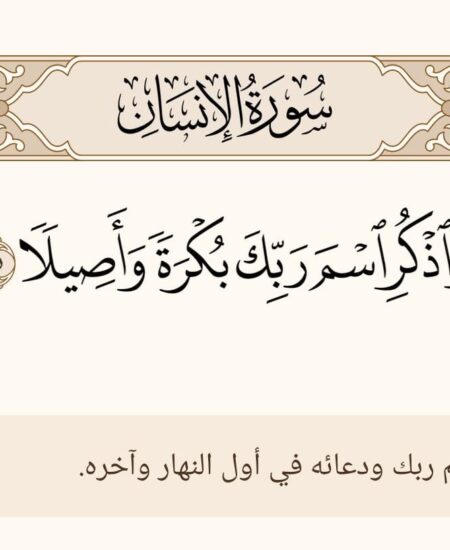 سُورَةُ الإِنسَانِ
ٱذْكُرِ ٱسْمَ رَبِّكَ بُكْرَةً وَأَصِيلًا
ربك ودعائه في أول النهار وآخره.